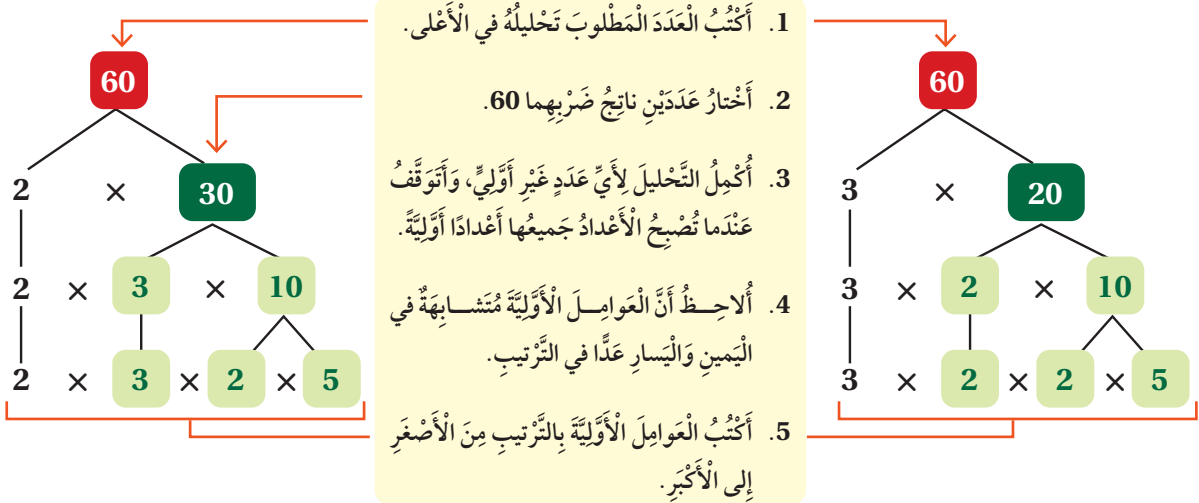 1. أَكْتُبُ الْعَدَدَ الْمَطْلوبَ تَحْليلُهُ في الْأَعْلى.
2. أَخْتارُ عَدَدَيْنِ ناتِجُ ضَرْبِهِما 60.
3. أُكْمِلُ التَّحْليلَ لِأَيِّ عَدَدٍ غَيْرِ أَوَّلِيٍّ، وَأَتَوَقَّفُ
عَنْدَما تُصْبِحُ الْأَعْدادُ جَميعُها أَعْدادًا أَوَّلِيَّةً.
4. أُلاحِظُ أَنَّ الْعَوامِلَ الْأَوَّلِيَّةَ مُتَشابِهَةٌ في
الْيَمينِ وَالْيَسارِ عَدًّا في التَّرْتيبِ.
5. أَكْتُبُ الْعَوامِلَ الْأَوَّلِيَّةَ بِالتَّرْتيبِ مِنَ الْأَصْغَرِ
إِلى الْأَكْبَرِ.
60
2 × 30
2 × 3 × 10
2 × 3 × 2 × 5
60
3 × 20
3 × 2 × 10
3 × 2 × 2 × 5